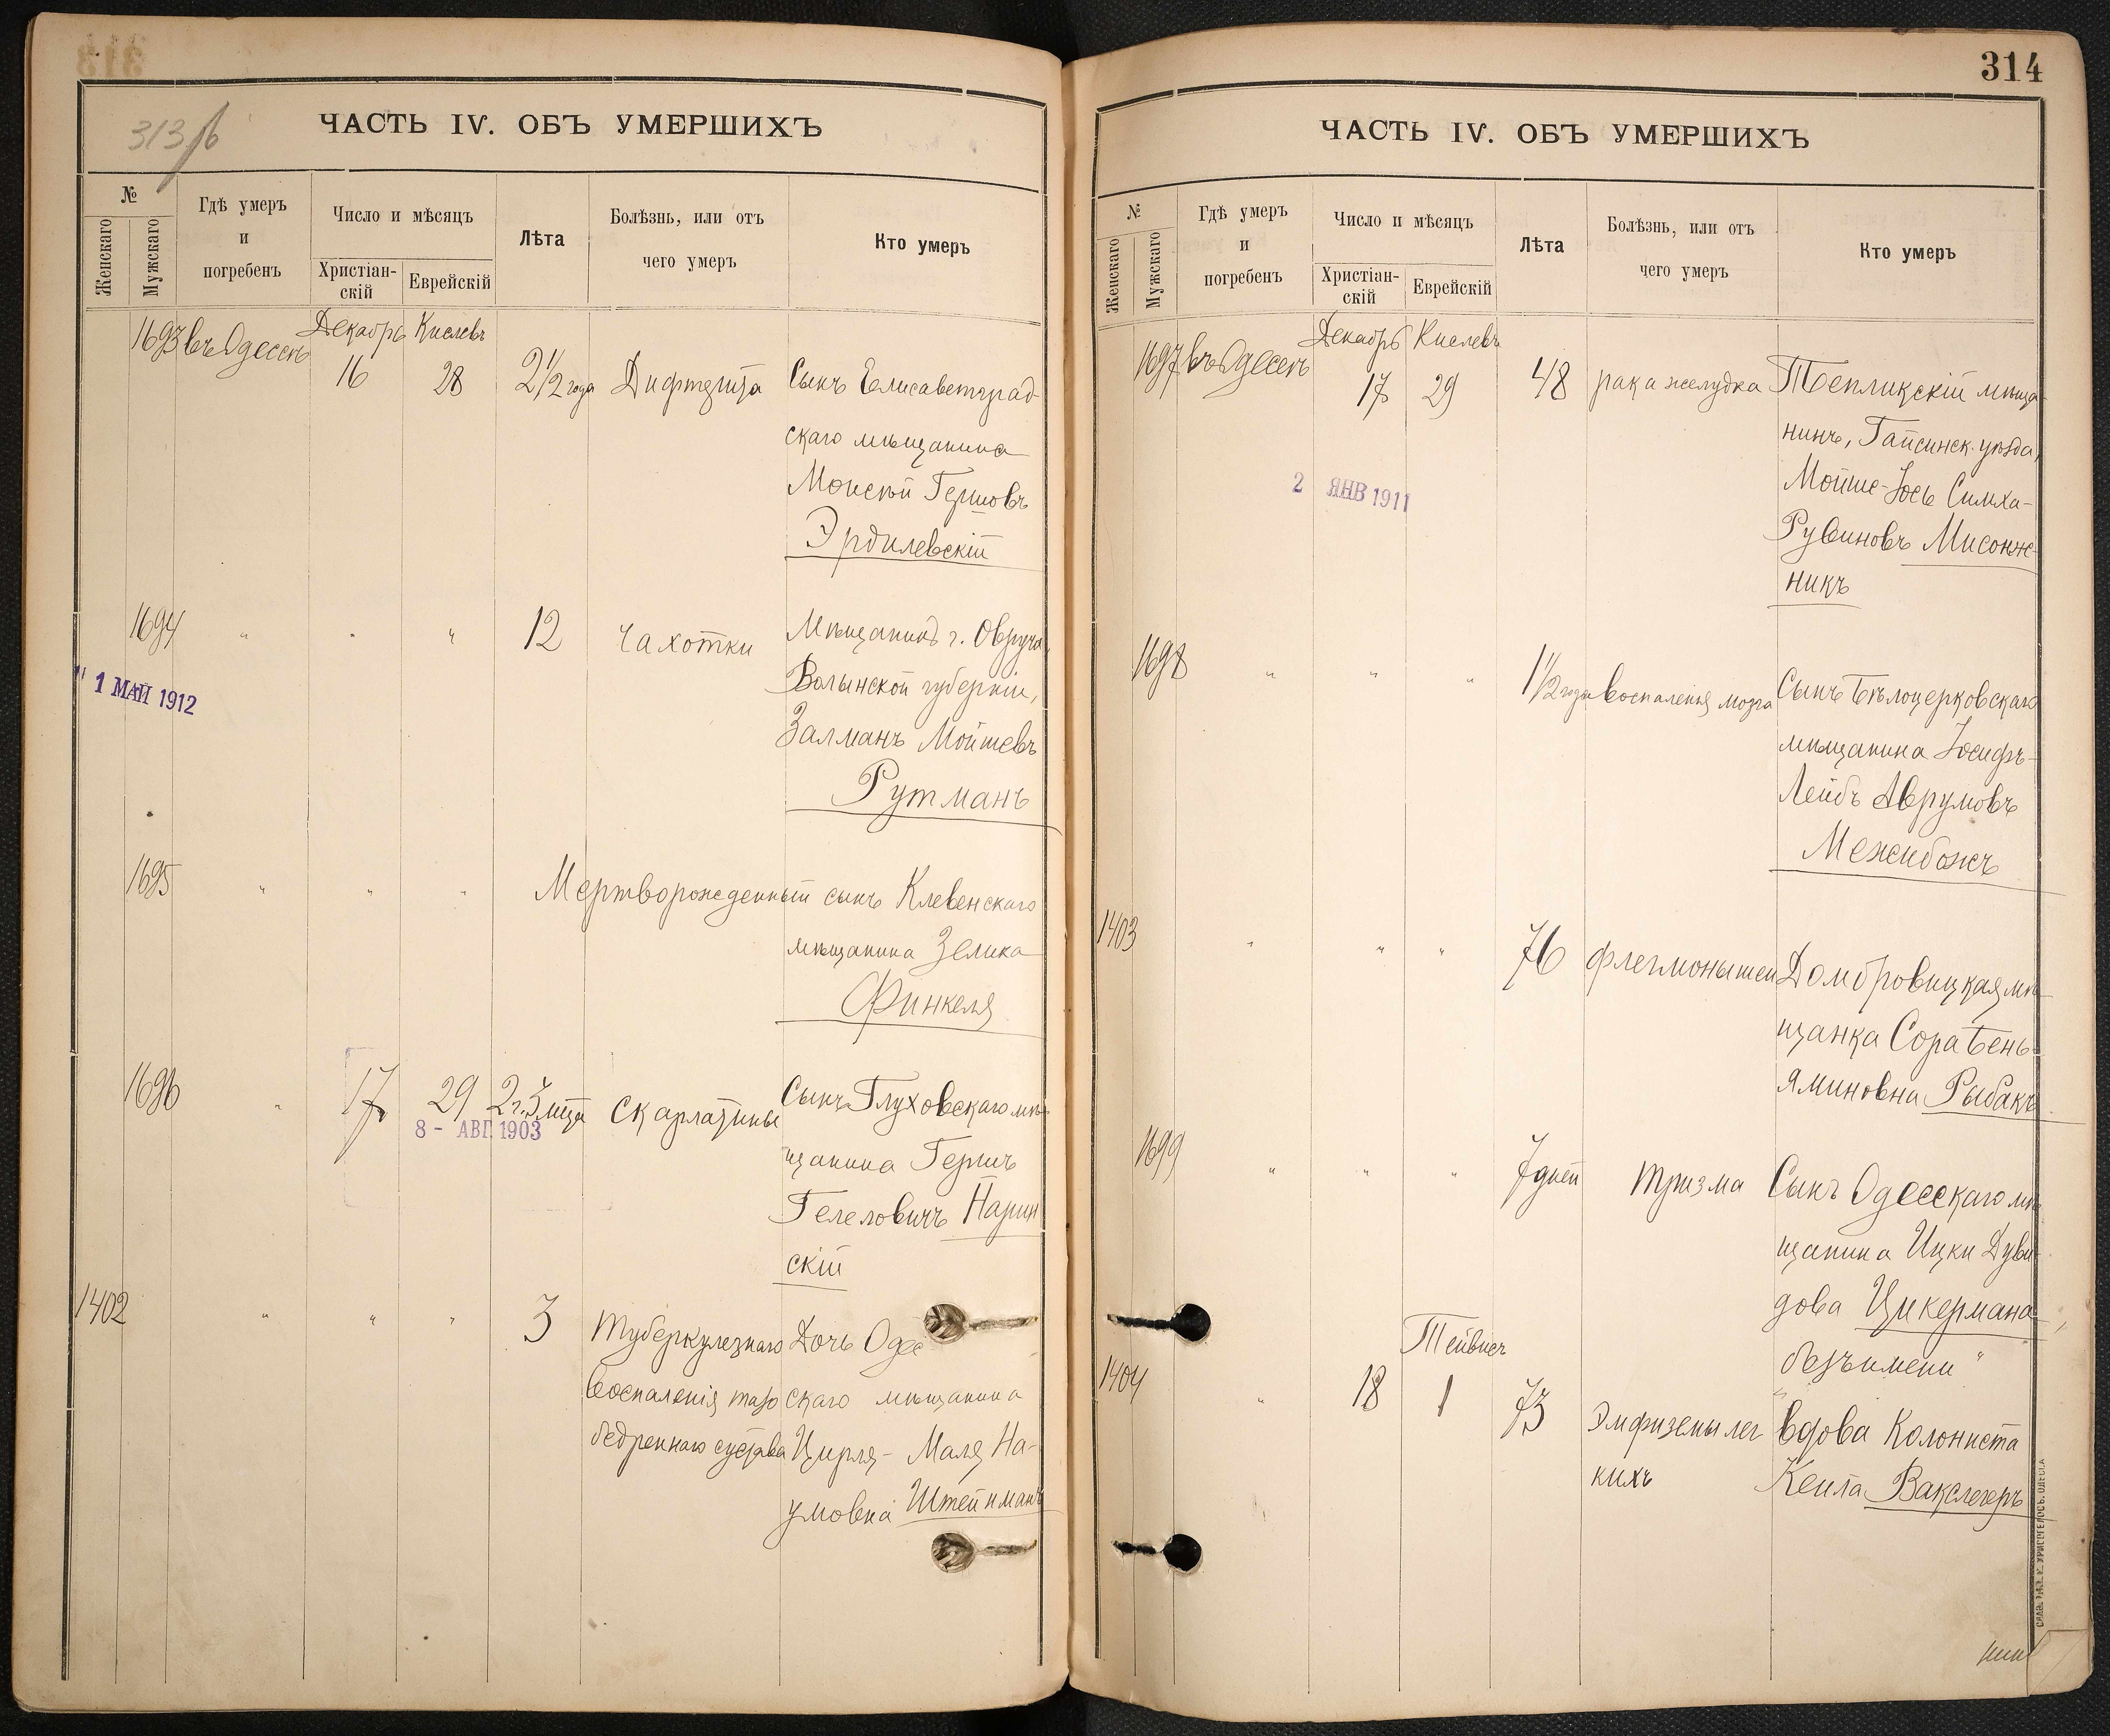 313 б
ЧАСТЬ IV. ОБЪ УМЕРШИХЪ
№
Женскаго
Мужскаго
Гдѣ умеръ
и
погребенъ
Число и мѣсяцъ
Христіан-
скій
Еврейскій
Лѣта
Болѣзнь, или отъ
чего умеръ
Кто умеръ
1693 въ Одессѣ Декабрь Кислевъ
16 28 2 1/2 года Дифтерита Сынъ Елисаветград-
скаго мѣщанина
Моисей Гершовъ
Эрдилевскій
1694 " " " 12 Чахотки Мѣщанинъ г. Овруча
Волынской губерніи,
Залманъ Мойшевъ
Рутманъ
1 МАЙ 1912
1695 " " " Мертворожденный сынъ Клевенскаго
мѣщанина Зелика
Финкеля
1696 " 17 29 2 г. 3 мѣца Скарлатины Сынъ Глуховскаго мѣ-
щанина Гершъ
Гелеловичъ Нарин
скій
8 - АВГ. 1903
1402 " " " 3 Туберкулезнаго Дочь Одес
воспаленія тазо скаго мѣщанина
бедреннаго сустава Цирля-Маля На-
умовна Штейнманъ
314
ЧАСТЬ IV. ОБЪ УМЕРШИХЪ
№
Женскаго
Мужскаго
Гдѣ умеръ
и
погребенъ
Число и мѣсяцъ
Христіан-
скій
Еврейскій
Лѣта
Болѣзнь, или отъ
чего умеръ
Кто умеръ
1697 въ Одессѣ Декабрь Кислевъ
17 29 48 рака желудка Тепликскій мѣща-
нинъ, Гайсинск. уѣзда,
Мойше-Іось Симха-
Рувиновъ Мисонж-
никъ
2 ЯНВ 1911
1698 " " " 1 1/2 года воспаленія мозга Сынъ Бѣлоцерковскаго
мѣщанина Іосифъ-
Лейбъ Аврумовъ
Межибожъ
1403 " " " 76 флегмоны шеи Домбровицкая мѣ-
щанка Сора Бень-
яминовна Рыбакъ
1699 " " " 7 дней тризма Сынъ Одесскаго мѣ
щанина Ицки Дуви-
дова Цикермана
безъ имени "
Тейвисъ
1404 " 18 1 73 Эмфиземы лег вдова Колониста
кихъ Кеила Вакслегеръ